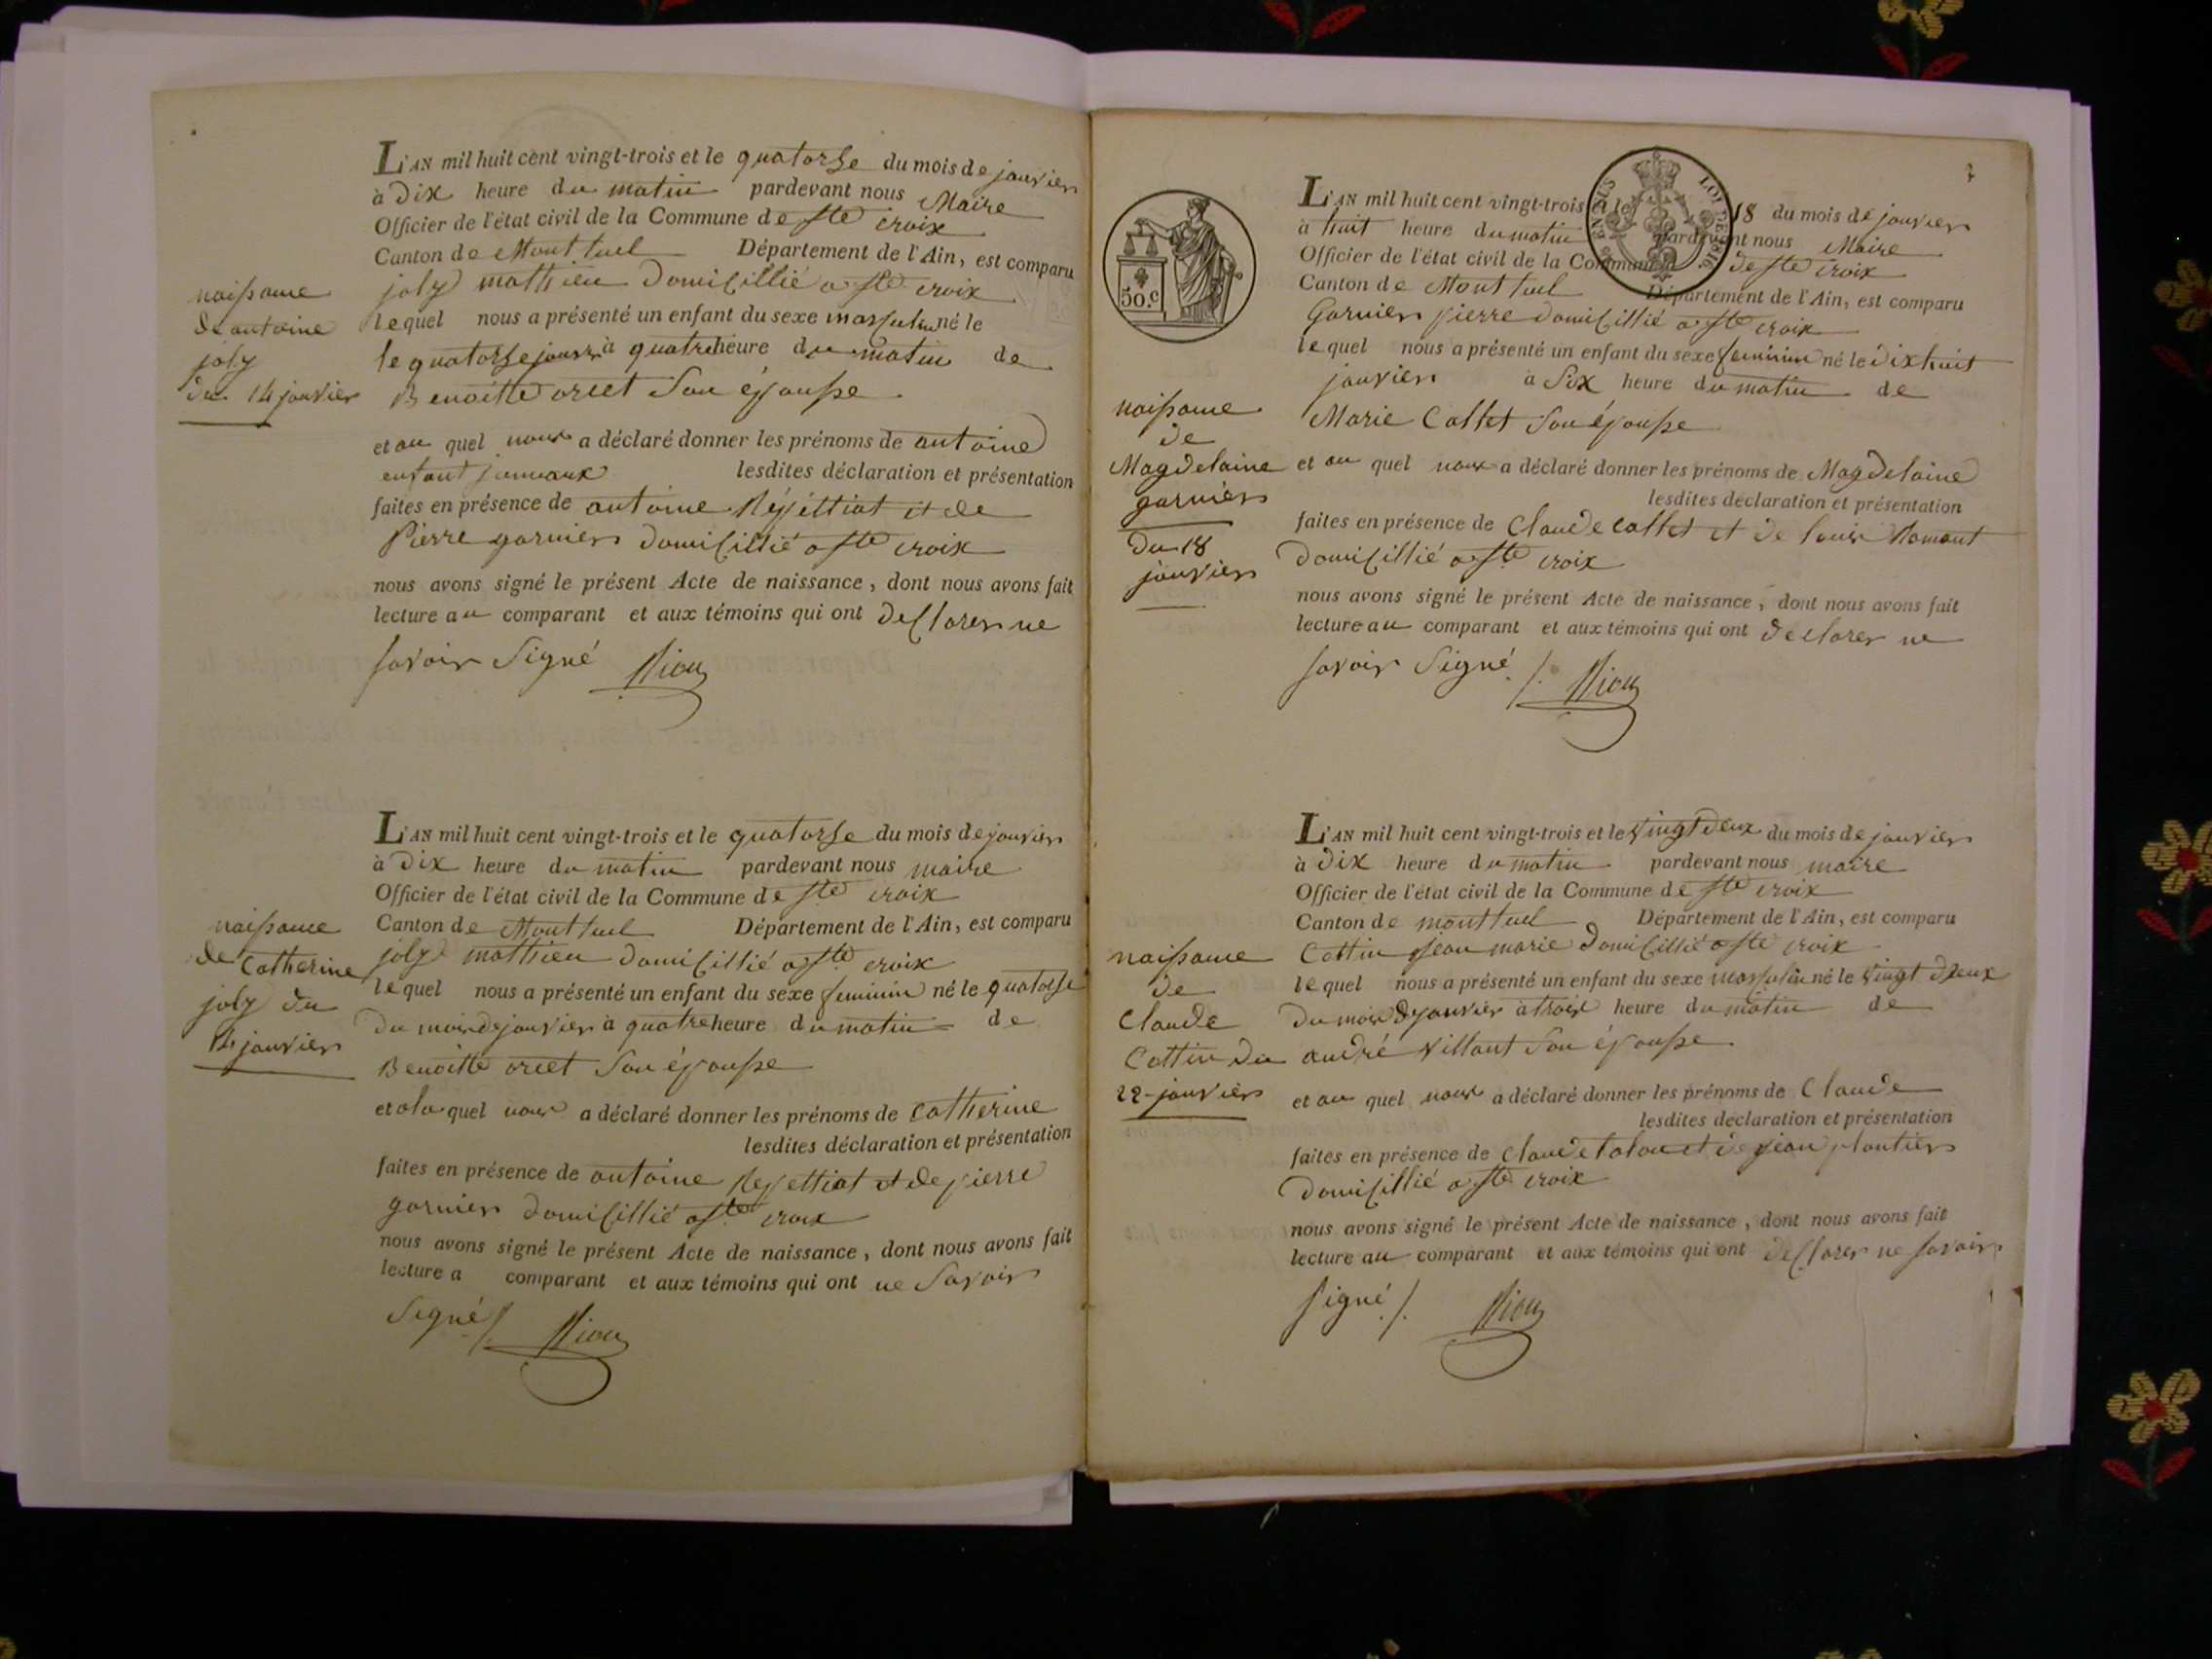 naissance
de antoine
joly
du 14 janvier
L'AN mil huit cent vingt-trois et le quatorse du mois de janvier
à Dix heure du matin pardevant nous Maire
Officier de l'état civil de la Commune de ste croix
Canton de Mont luel Département de l'Ain, est comparu
joly mathieu Domicillié a ste croix
lequel nous a présenté un enfant du sexe masculin né le
le quatorse janvr à quatre heure du matin de
Benoitte orcet Son épousse
et au quel nous a déclaré donner les prénoms de antoine
enfant jumeaux lesdites déclaration et présentation
faites en présence de antoine Repettiat et de
Pierre garnier domicillié a ste croix
nous avons signé le présent Acte de naissance, dont nous avons fait
lecture au comparant et aux témoins qui ont declarer ne
savoir Signé
naissance
de Catherine
joly du
14 janvier
L'AN mil huit cent vingt-trois et le quatorse du mois de janvier
à Dix heure du matin pardevant nous maire
Officier de l'état civil de la Commune de ste croix
Canton de Mont luel Département de l'Ain, est comparu
joly mathieu domicillié a ste croix
lequel nous a présenté un enfant du sexe feminin né le quatorse
du mois de janvier à quatre heure du matin de
Benoitte orcet Son épousse
et ala quel nous a déclaré donner les prénoms de Catherine
lesdites déclaration et présentation
faites en présence de antoine Repettiat et de pierre
garnier domicillié a ste croix
nous avons signé le présent Acte de naissance, dont nous avons fait
lecture a comparant et aux témoins qui ont ne Savoir
Signé
50.c
LOI DE 1816
3
naissance
de
Magdelaine
garnier
Du 18
janvier
L'AN mil huit cent vingt-trois et le 18 du mois de janvier
à huit heure du matin pardevant nous Maire
Officier de l'état civil de la Commune de ste croix
Canton de Mont luel Département de l'Ain, est comparu
Garnier pierre domicillié a ste croix
lequel nous a présenté un enfant du sexe feminin né le Dix huit
janvier à Six heure du matin de
Marie Collet Son épousse
et au quel nous a déclaré donner les prénoms de Magdelaine
lesdites déclaration et présentation
faites en présence de Claude Collet et de louis
Domicillié a ste croix
nous avons signé le présent Acte de naissance, dont nous avons fait
lecture au comparant et aux témoins qui ont declarer ne
savoir Signé ./.
naissance
de
Claude
Cottin du
22 janvier
L'AN mil huit cent vingt-trois et le vingt deux du mois de janvier
à Dix heure du matin pardevant nous maire
Officier de l'état civil de la Commune de ste croix
Canton de mont luel Département de l'Ain, est comparu
Cottin jean marie Domicillié a ste croix
lequel nous a présenté un enfant du sexe masculin né le vingt deux
du mois de janvier à trois heure du matin de
andré villant Son épousse
et au quel nous a déclaré donner les prénoms de Claude
lesdites déclaration et présentation
faites en présence de Claude et de jean plantier
Domicillié a ste croix
nous avons signé le présent Acte de naissance, dont nous avons fait
lecture au comparant et aux témoins qui ont declarer ne savoir
signé ./.